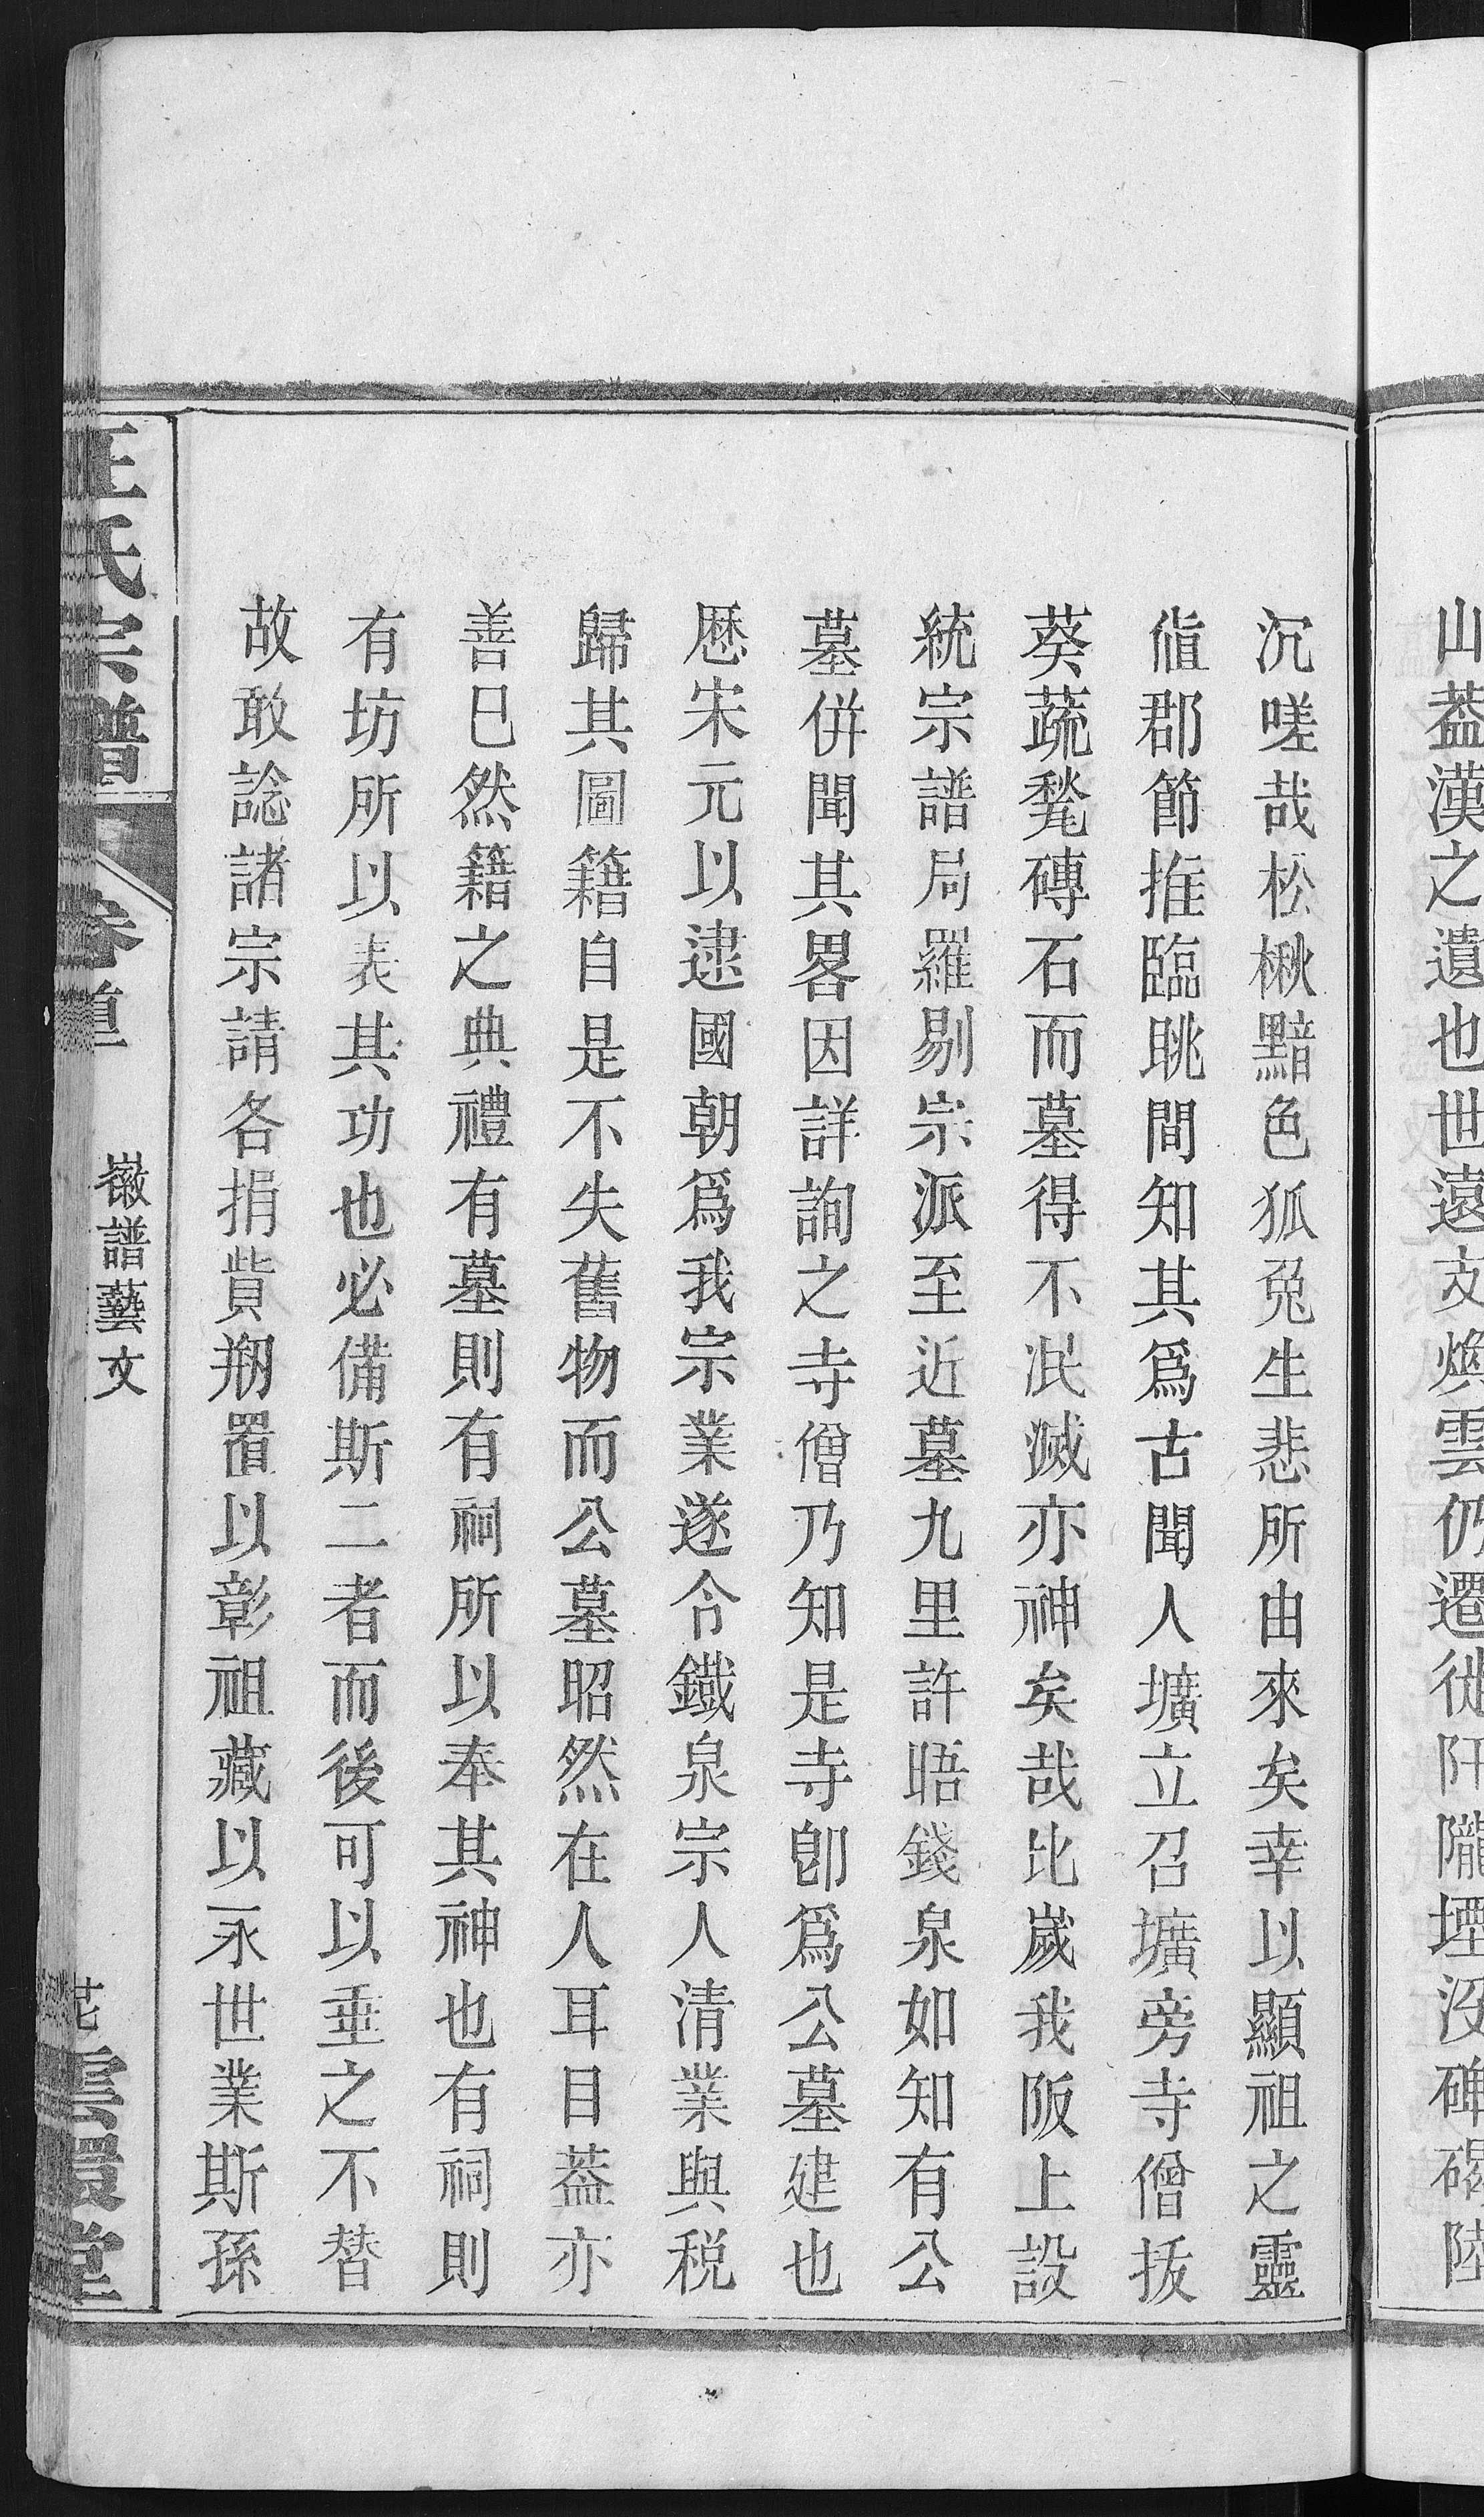 山葢漢之遺也世遠文煥雲仍遷徙阡隴堙沒碑碣陸
沉嗟哉松楸黯色狐兔生悲所由來矣幸以顯祖之靈
值郡節推臨眺間知其爲古聞人壙立召壙旁寺僧拔
葵蔬甃磚石而墓得不泯滅亦神矣哉比嵗我阪上設
統宗譜局羅剔宗派至近墓九里許晤錢泉如知有公
墓併聞其畧因詳詢之寺僧乃知是寺卽爲公墓建也
厯宋元以逮國朝爲我宗業遂令鐵泉宗人清業與税
歸其圖籍自是不失舊物而公墓昭然在人耳目葢亦
善巳然籍之典禮有墓則有祠所以奉其神也有祠則
有坊所以表其功也必備斯二者而後可以垂之不替
故敢諗諸宗請各捐貲剏置以彰祖藏以永世業斯孫
汪氏宗譜
卷首
徽譜藝文
雲環堂